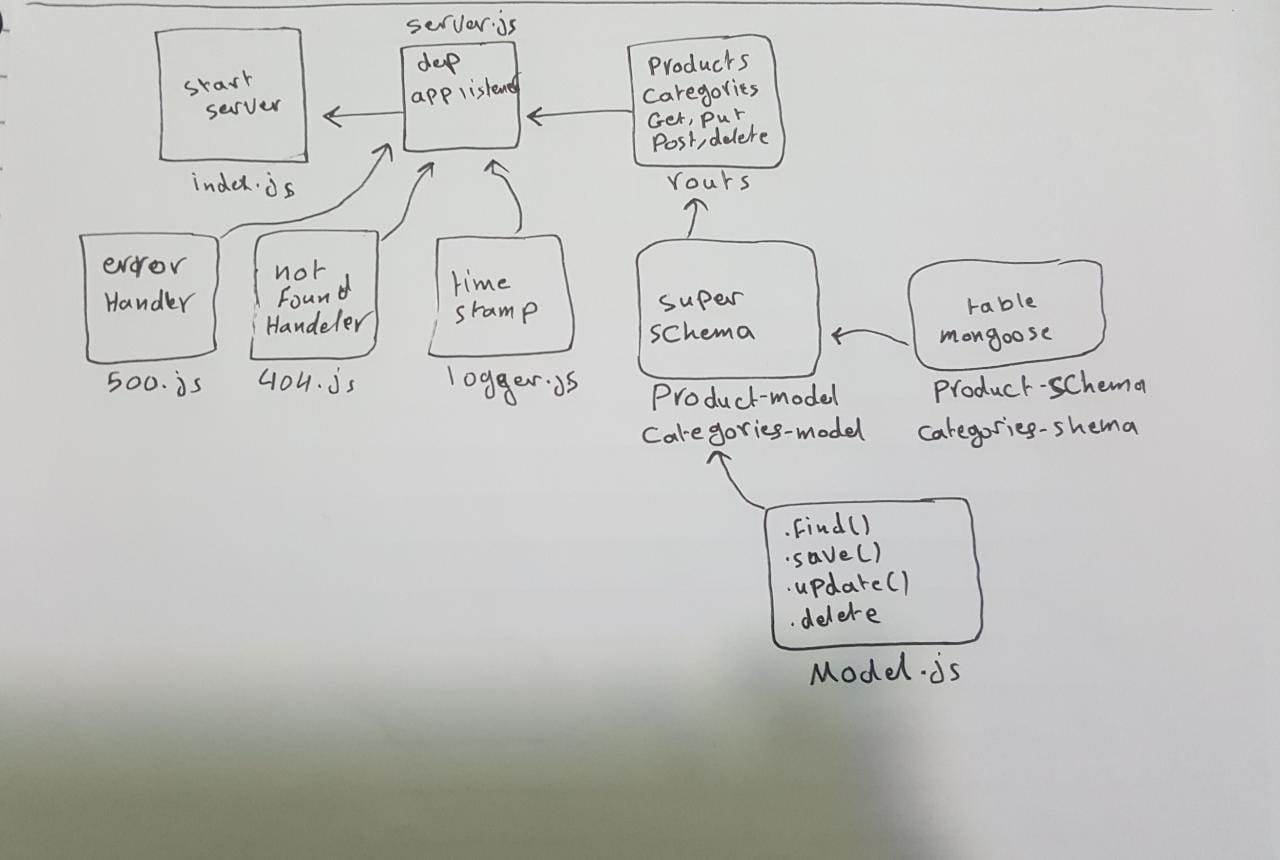 server.js
start
server
index.js
dep
app listener
Products
Categories
Get, put
Post, delete
routs
error
Handler
500.js
not
Found
Handeler
404.js
time
stamp
logger.js
super
SChema
Product-model
Categories-model
table
mongoose
Product-SChema
Categories-shema
.find()
.save()
.update()
.delete
Model.js